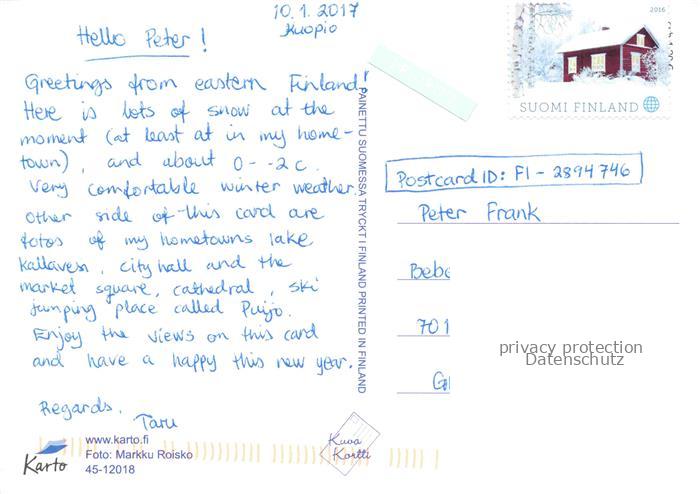 10.1.2017
Kuopio
Hello Peter!
Greetings from eastern Finland!
Here is lots of snow at the
moment (at least at in my home-
town), and about 0 - -2 c.
Very comfortable winter weather.
Other side of this card are
fotos of my hometowns lake
Kallavesi, city hall and the
market square, cathedral, ski
jumping place called Puijo.
Enjoy the views on this card
and have a happy this new year.
Regards,
Taru
www.karto.fi
Foto: Markku Roisko
45-12018
Karto
Kuva
Kortti
PAINETTU SUOMESSA TRYCKT I FINLAND PRINTED IN FINLAND
2016
SUOMI FINLAND
Postcard ID: FI - 2894746
Peter Frank
Bebe
701
privacy protection
Datenschutz